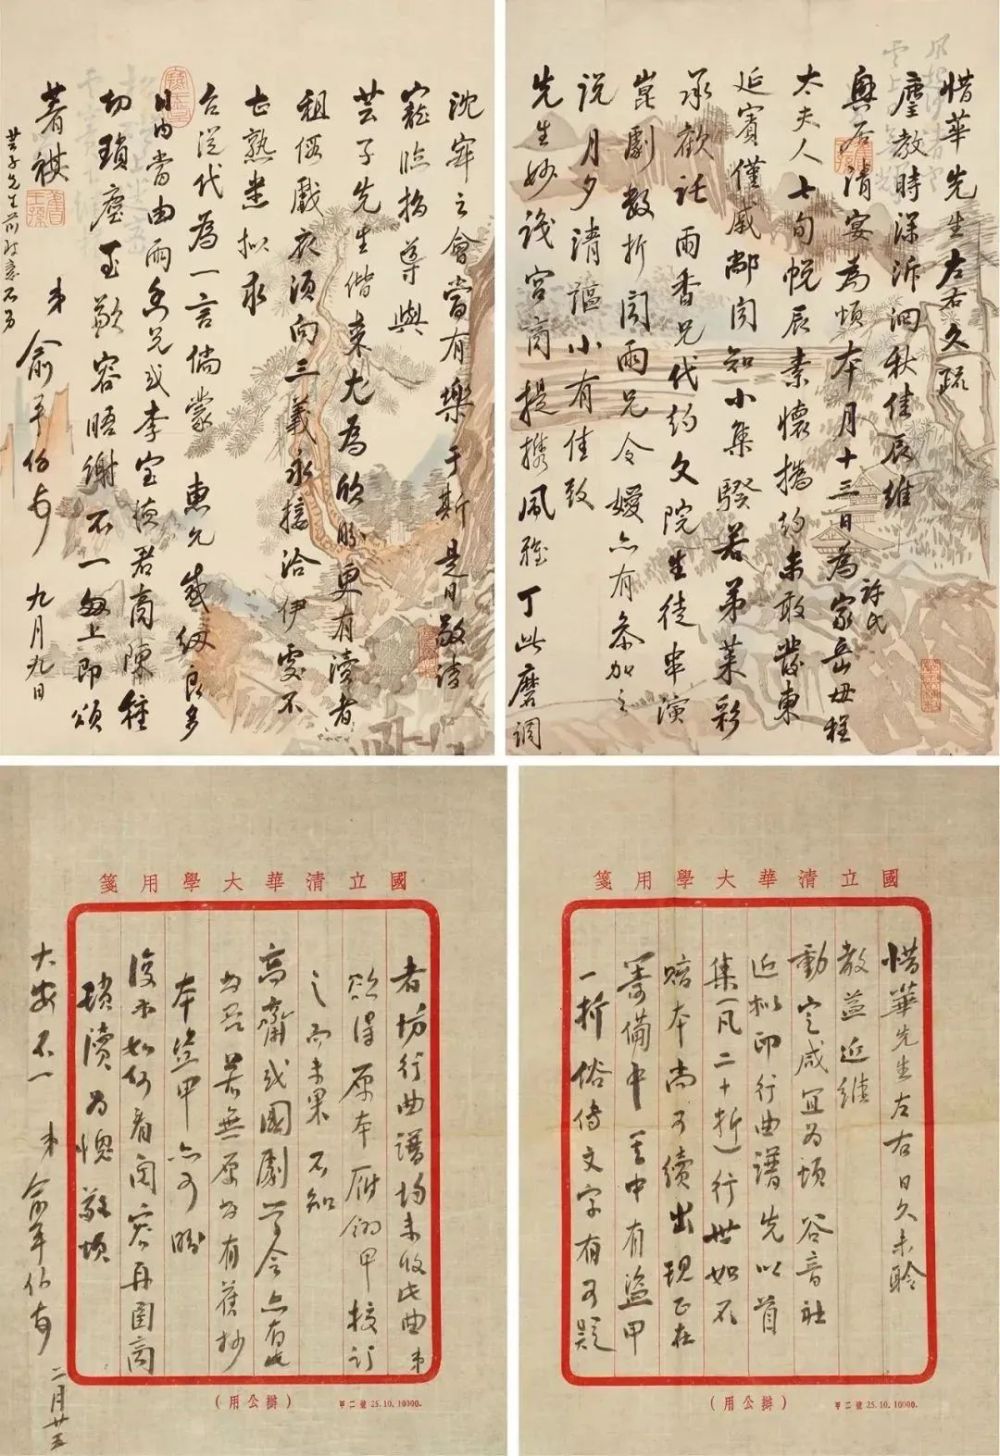 惜華先生左右久疏
麈教時深泝洄秋佳辰維
興居清宴為頌本月十三日為家岳母程
許氏
太夫人七旬帨辰素懷撝約未敢發柬
延賓僅戚鄰間知小集騤若弟萊彩
承歡託雨香兄代約文院生徒串演
崑劇數折聞雨兄令嬡亦有參加之
說月夕清謳小有佳致
先生妙識宮商提攜風雅丁此磨調
沈寂之會當有樂于斯是日敬請
寵臨指導與
芸子先生偕來尤為欣盼更有瀆者
租借戲衣須向三義永接洽伊處不
甚熟悉擬求
台從代為一言倘蒙惠允感紉良多
日內當由雨香兄或李宝瀆君商陳種
切瑣塵至歉容晤謝不一匆上即頌
著祺
弟俞平伯頓首九月九日
芸子先生前政意不另
國立清華大學用箋
惜華先生左右日久未聆
教益近維
動定咸宜為頌谷音社
近擬印行曲譜先以首
集(凡二十折)行世如不
賠本尚可續出現正在
籌備中其中有盜甲
一折俗傳文字有可疑
(辦公用)
甲二號25.10.10000.
國立清華大學用箋
者坊行曲譜均未收此曲弟
欲得原本雁翎甲校訂
之而未果不知
高齋或國劇學會亦有此
書否若無原書有舊抄
本盜甲亦可盼
復示如何看閱容再圖商
瑣瀆為愧敬頌
大安不一弟俞平伯頓首
二月廿五
(辦公用)
甲二號25.10.10000.